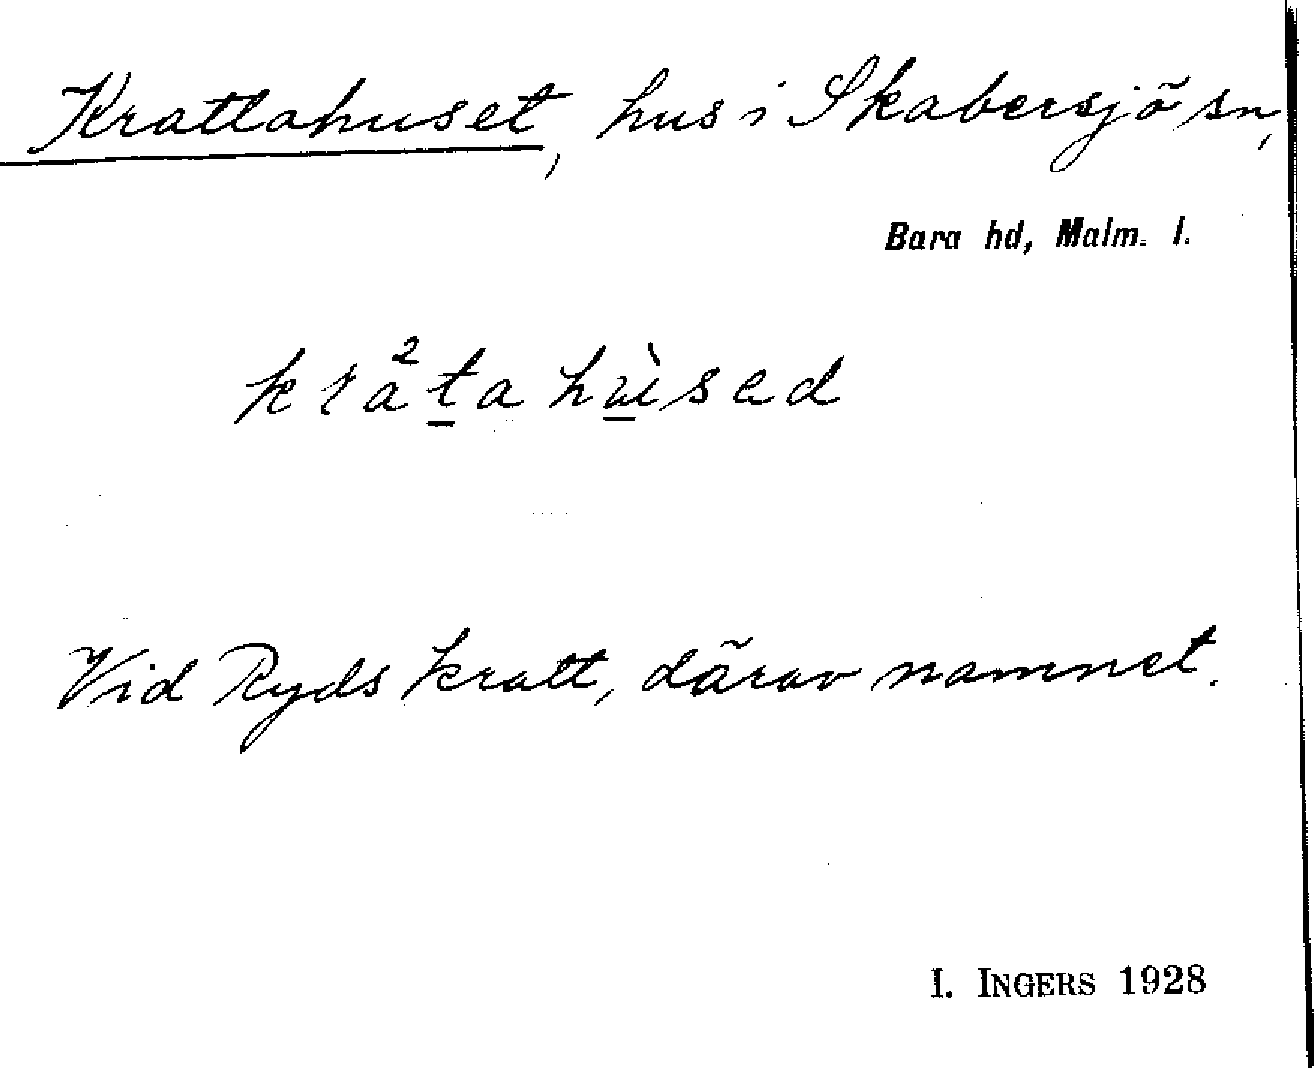 Krattahuset, hus i Skabersjö sn,
Bara hd, Malm. l.
Vid Ryds kratt, därav namnet.
I. INGERS 1928